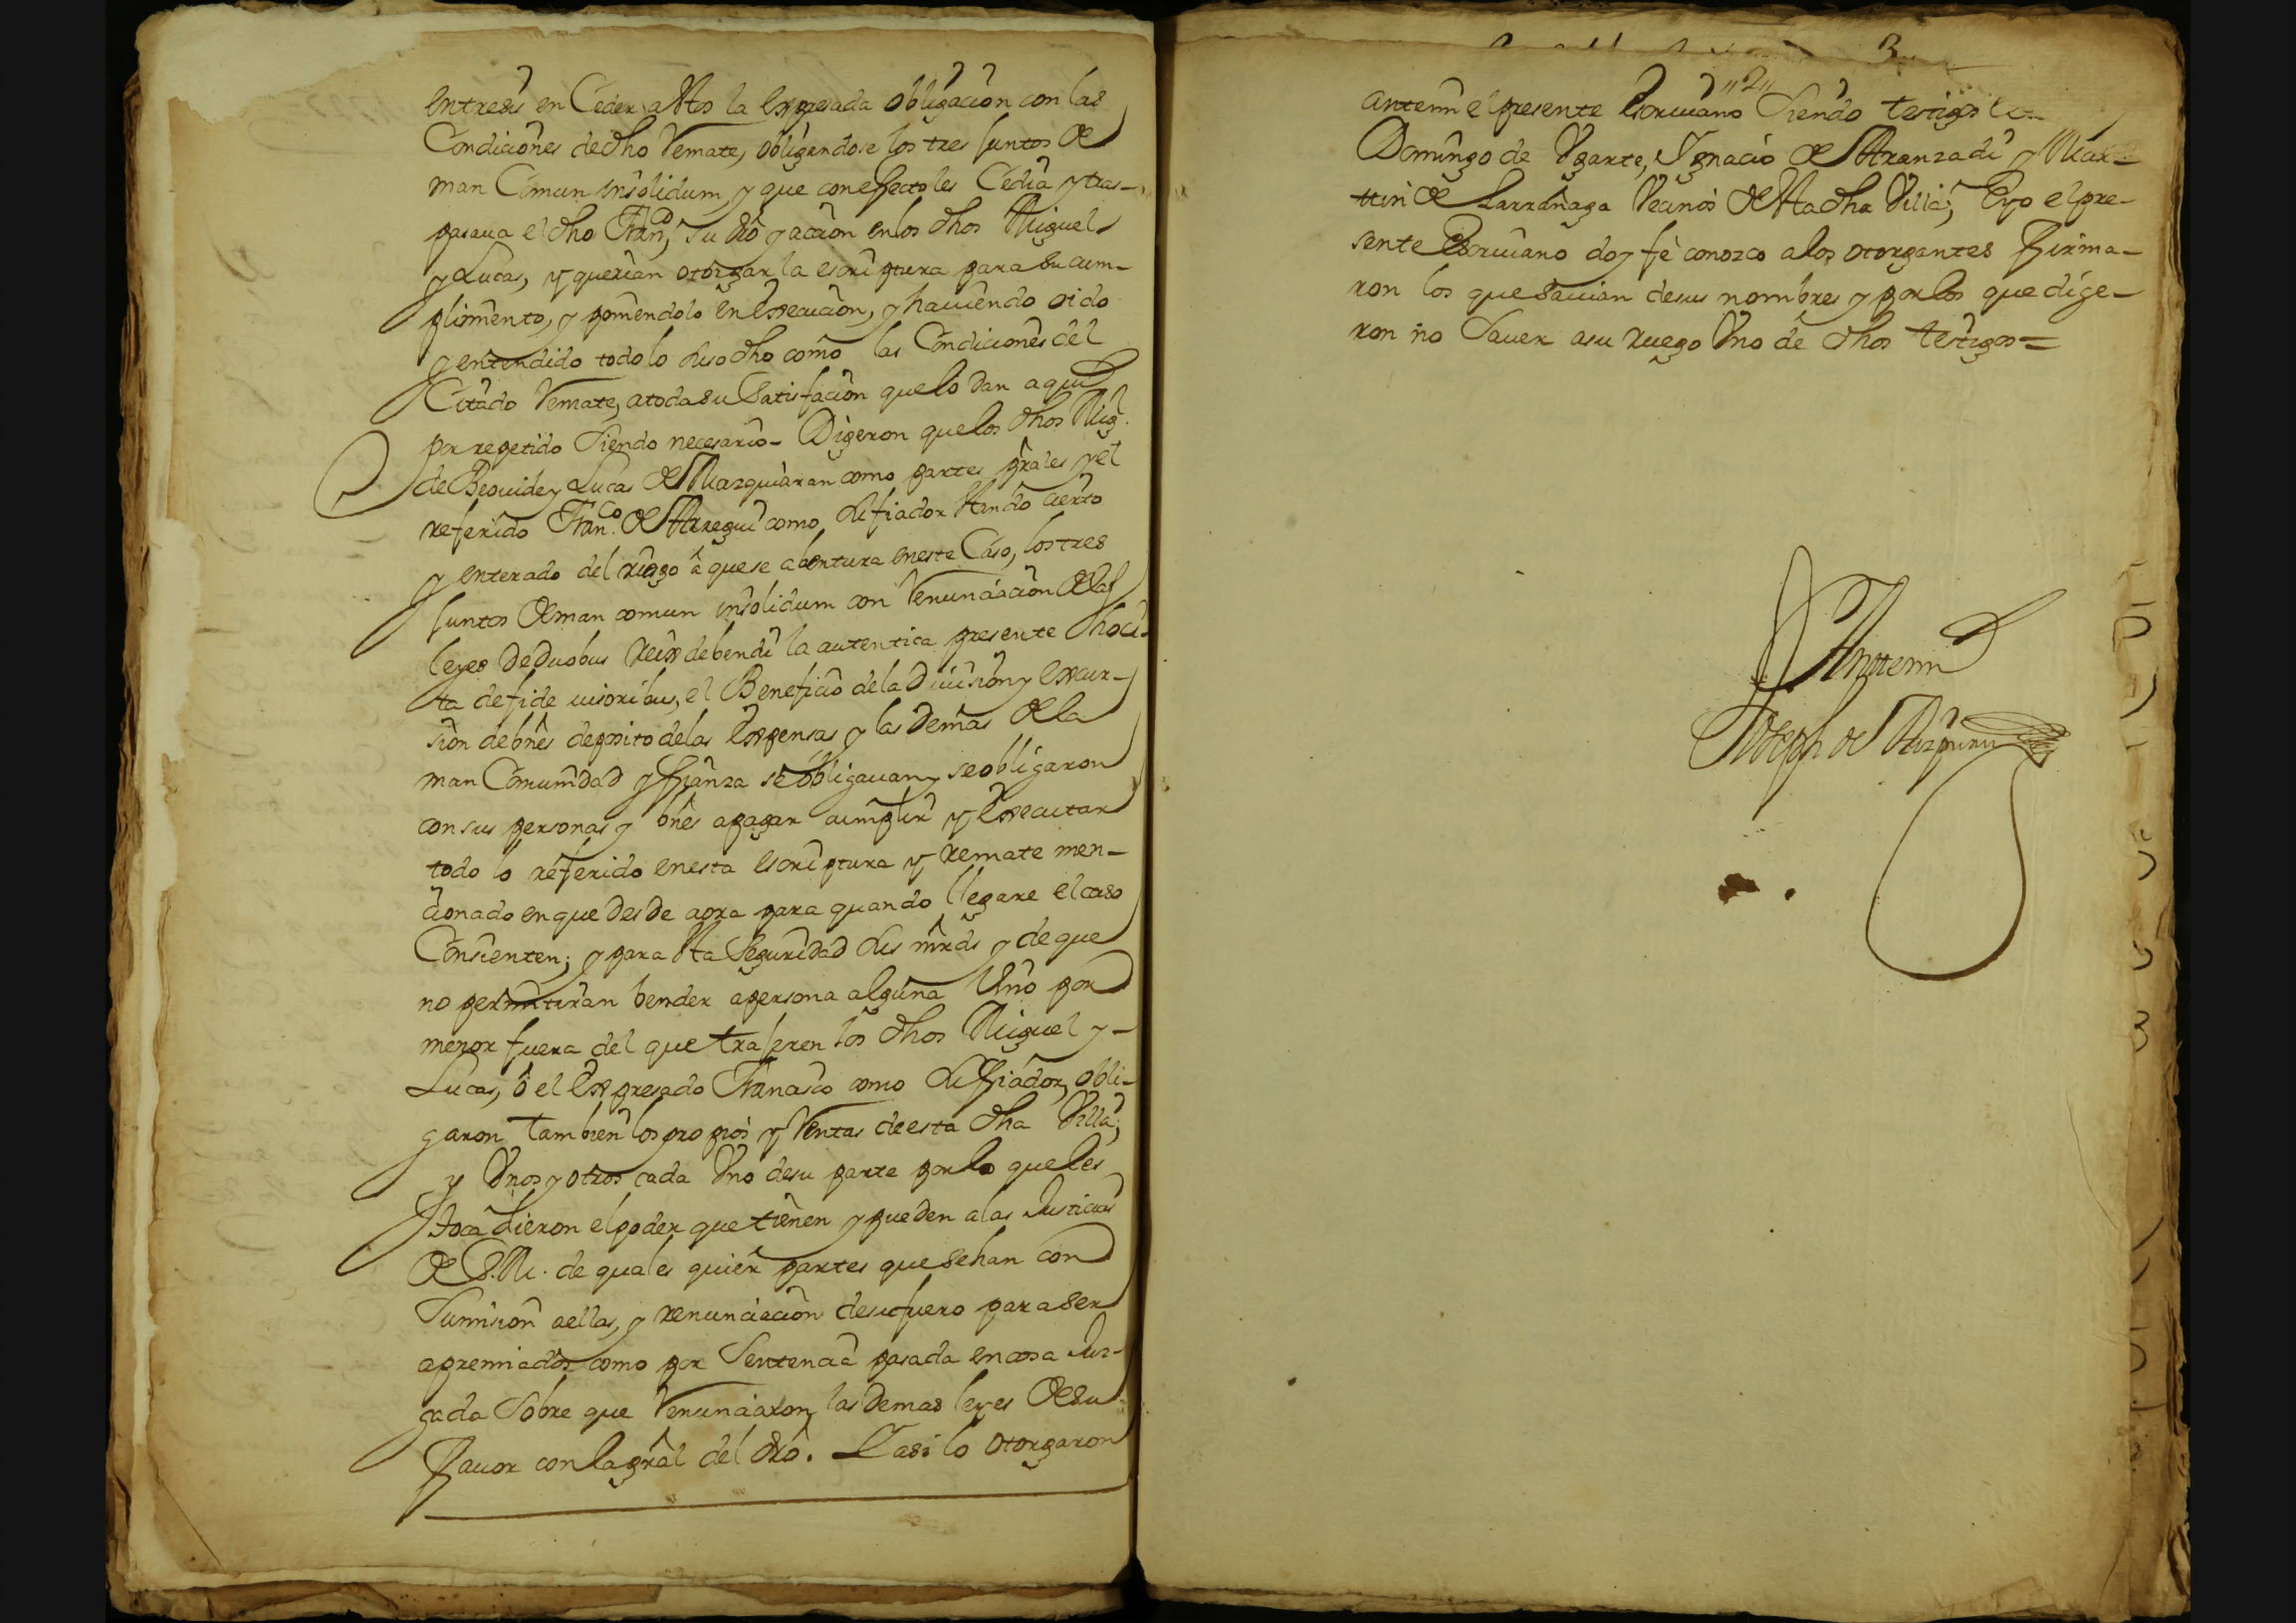 entresi en Ceder a Stos la expresada obligacion con las
Condiciones de dho Remate, obligandose los tres Juntos de
man Comun insolidum, y que con efecto les Cedia y tras-
pasava el dho Franco, su dro y accion en los dhos Miguel
y Lucas, y querian otorgar la escriptura para su cum-
plimento, y poniendolo en Execucion, y haviendo oido
y entendido todo lo suso dho como las Condiciones del
Citado Remate, a toda su Satisfacion que lo dan aqui
por repetido Siendo necesario - Digeron que los dhos Migl.
de Beovide y Lucas de Mazquiaran como partes prales y el
referido Franco. de Arregui como su fiador Stando cierto
y enterado del riesgo â que se abentura en este Caso, los tres
Juntos de man comun insolidum con Renunciacion de las
leyes de duobus Reix debendi la autentica presente hoci-
ta de fide iusoribus, el Beneficio de la Division y excur-
sion de bnes deposito de las Expensas y las demas de la
man Comunidad y fianza se obligavan y se obligaron
con sus personas y bnes a pagar cumplir y Executar
todo lo referido en esta escriptura y remate men-
cionado en que desde aora para quando llegare el caso
Consienten; y para Sta Seguridad sus mrds y de que
no permitiran bender a persona alguna Vino por
menor fuera del que trageren los dhos Miguel y -
Lucas, ô el Expresado Francisco como su fiador, obli-
garon tambien los propios y Rentas de esta dha Villa;
y Unos y otros cada Uno de su parte por lo que les
toca dieron el poder que tienen y pueden a las Justicias
de S.M. de quales quier partes que sehan con
Sumision a ellas, y renunciacion de su fuero para ser
apremiados como por Sentencia pasada en cosa Juz-
gada Sobre que Renunciaron las demas leyes de su
favor con la gral del dro. Y asi lo otorgaron
"2"
antemi el presente Escrivano Siendo testigos
Domingo de Ugarte, Ygnacio de Aranzadi y Mar-
ttin de Larrañaga Vecinos de Sta dha Villa; E yo el pre-
sente Escrivano doy fè conozco a los otorgantes firma-
ron los que savian de sus nombres y por los que dige-
ron no Saver a su ruego Uno de dhos testigos =
Antemi
Joseph de Aizpuru